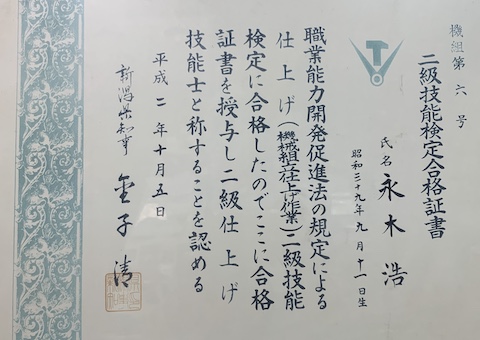 機組第六号
二級技能検定合格証書
氏名 永木浩
昭和三十九年九月十一日生
職業能力開発促進法の規定による
仕上げ(機械組立仕上げ作業)二級技能
検定に合格したのでここに合格
証書を授与し二級仕上げ
技能士と称することを認める
平成二年十月五日
新潟県知事 金子清